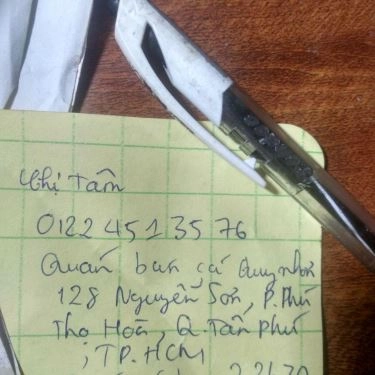 Chị Tâm
0122 451 35 76
Quán bún cá Quy nhơn
128 Nguyễn Sơn, P. Phú
Thọ Hoà, Q. Tân phú
; TP. HCM